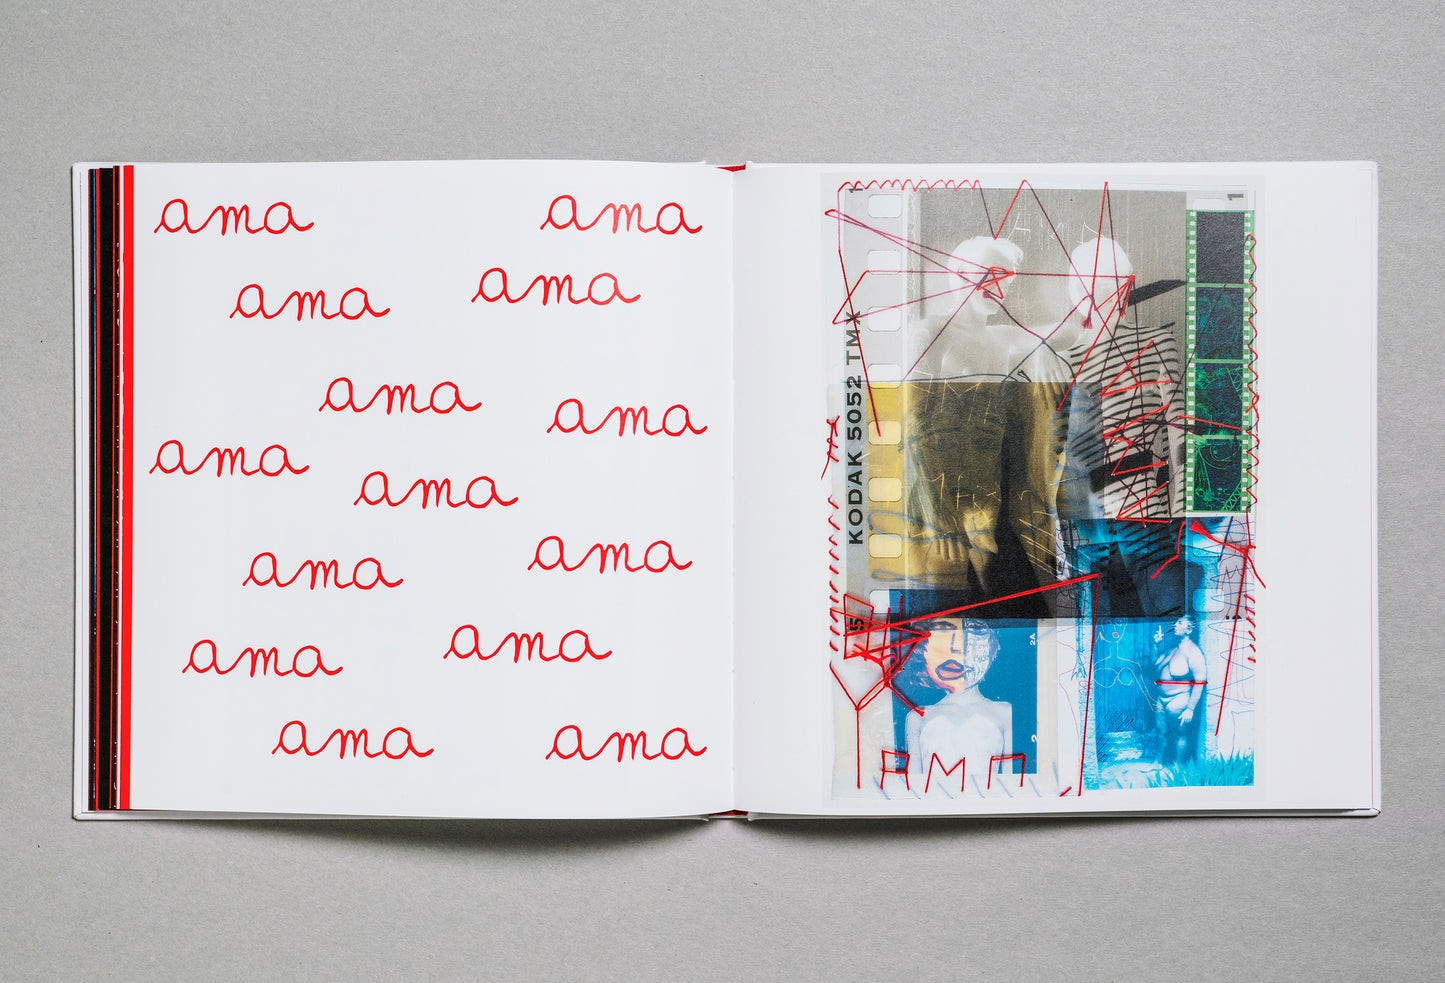 ama ama
ama ama
ama
ama
ama
ama
ama
ama
ama
ama
ama ama
1
1
KODAK 5052 TMX
5
2A
2
AMA